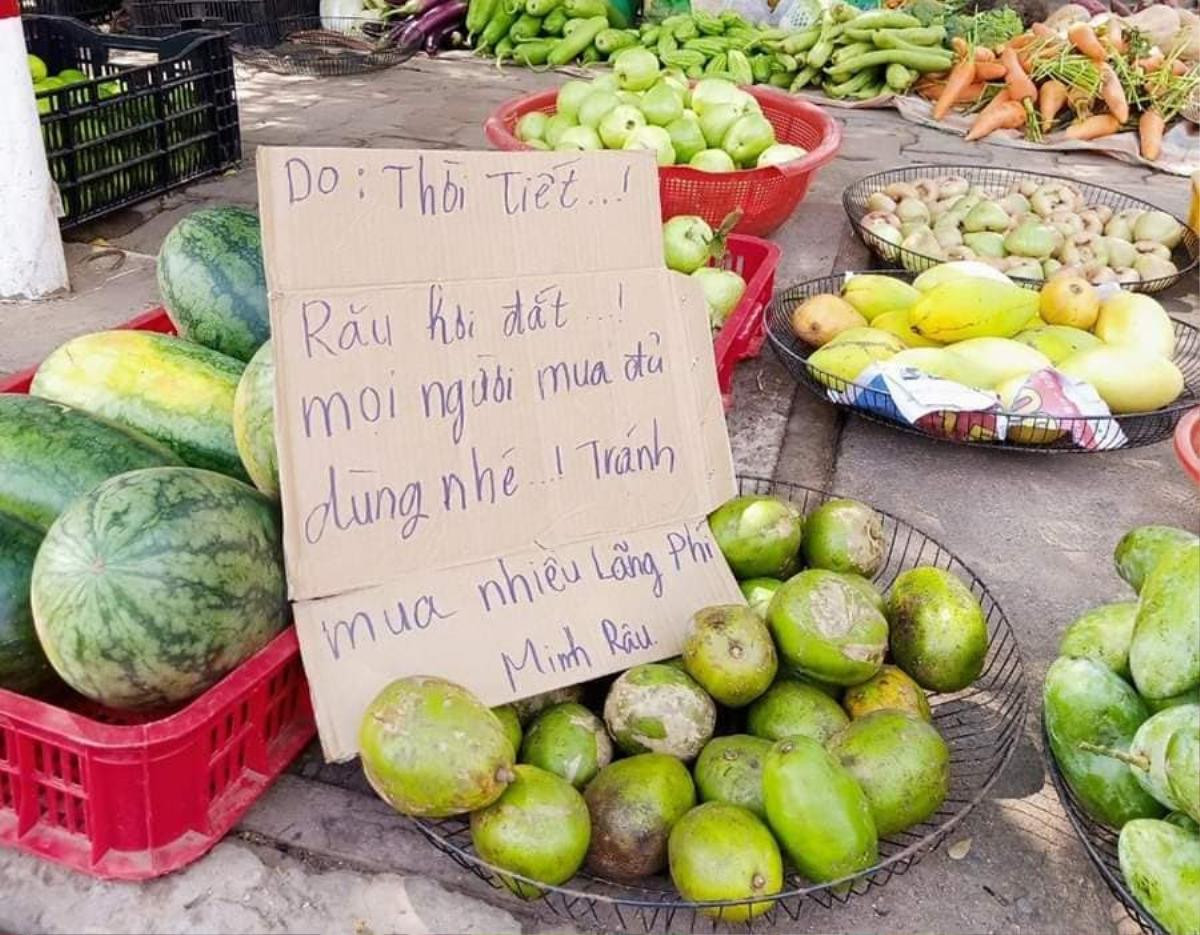 Do: Thời Tiết...!
Rău hơi đắt...!
mọi người mua đủ
dùng nhé...! Tránh
mua nhiều Lãng Phí
Minh Râu.